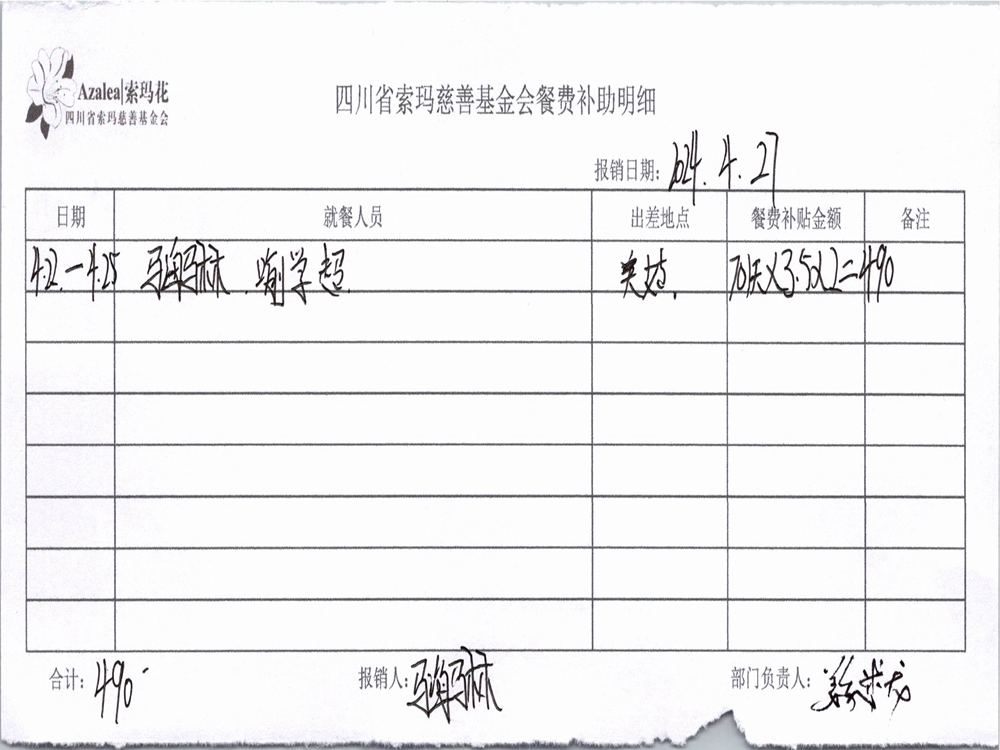 Azalea|索玛花
四川省索玛慈善基金会
四川省索玛慈善基金会餐费补助明细
报销日期: 2024.4.27
日期 就餐人员 出差地点 餐费补贴金额 备注
4.22-4.25 70/天X3.5X2=490
合计: 490
报销人:
部门负责人: